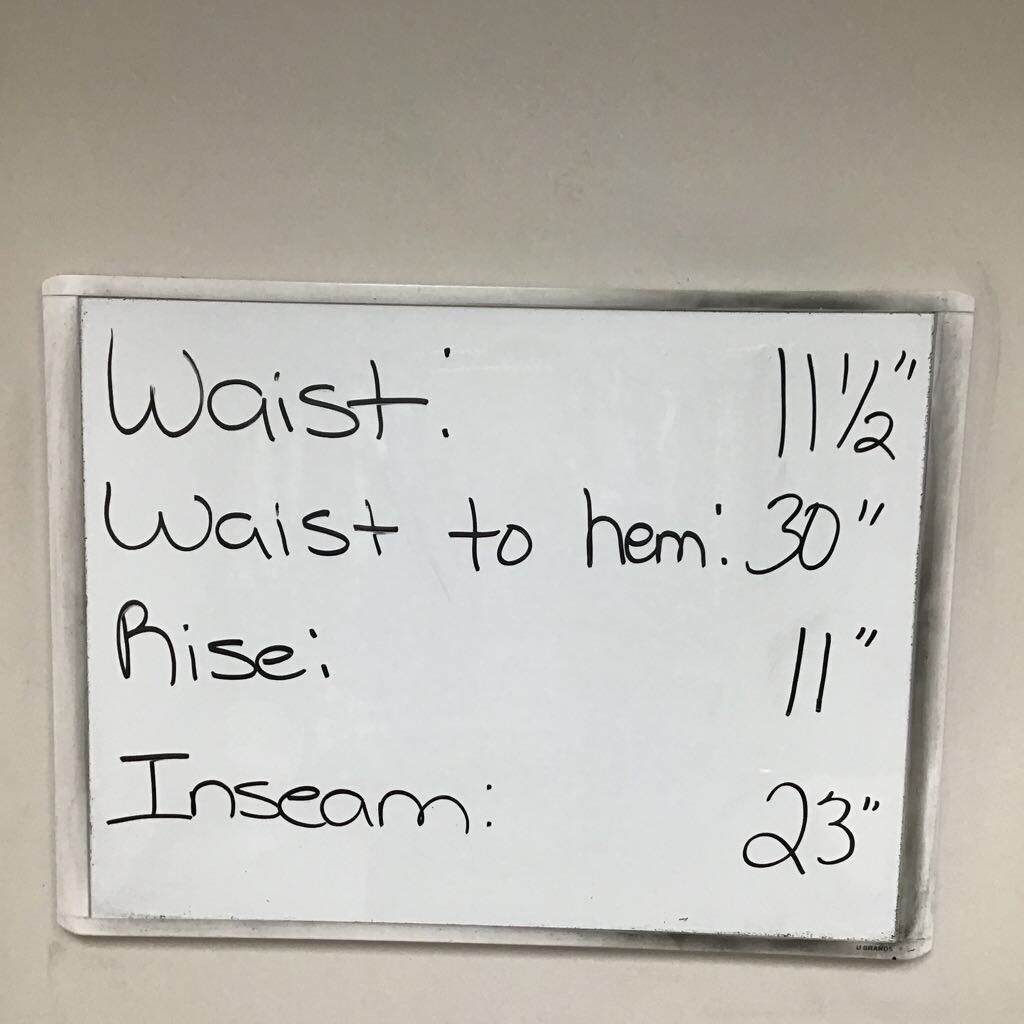 Waist: 11 1/2"
Waist to hem: 30"
Rise: 11"
Inseam: 23"
U BRANDS